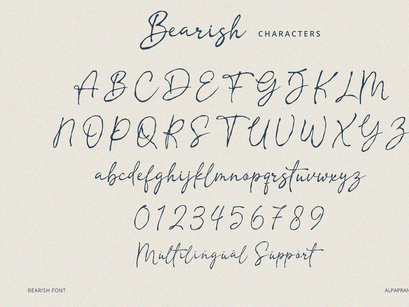 Bearish CHARACTERS
A B C D E F G H I J K L M
N O P Q R S T U V W X Y Z
abcdefghijklmnopqrstuvwxyz
0123456789
Multilingual Support
BEARISH FONT ALPAPRAN